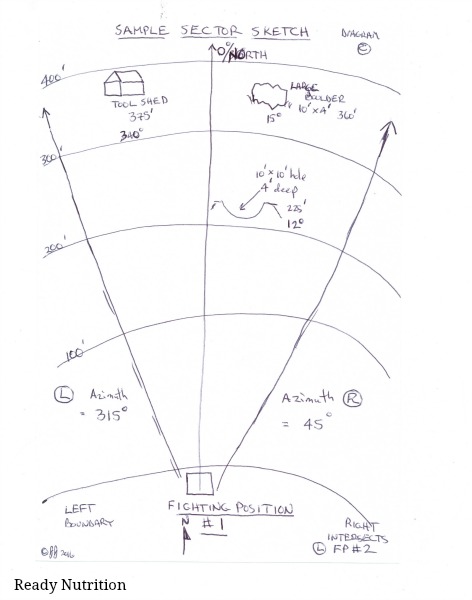 SAMPLE SECTOR SKETCH
DIAGRAM
C
0°/NORTH
400'
TOOL SHED
375'
340°
LARGE
BOULDER
10' x 4'
15°
360'
300'
10' x 10' hole
4' deep
225'
12°
200'
100'
L Azimuth
= 315°
Azimuth R
= 45°
LEFT
BOUNDARY
FIGHTING POSITION
# 1
N
RIGHT
INTERSECTS
L FP #2
2016
Ready Nutrition